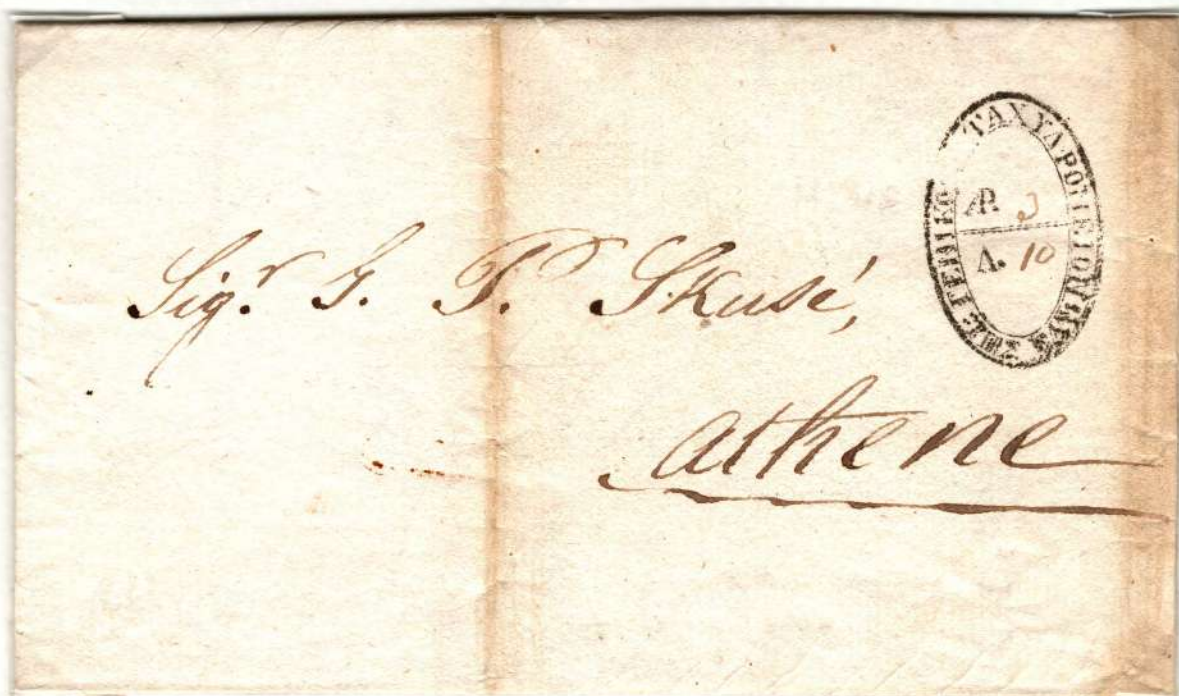 ΓΕΝΙΚΟ ΤΑΧΥΔΡΟΜΕΙΟΝ
ΑΡ. 3
Δ. 10
Sig.r G. P. Skusé,
athene